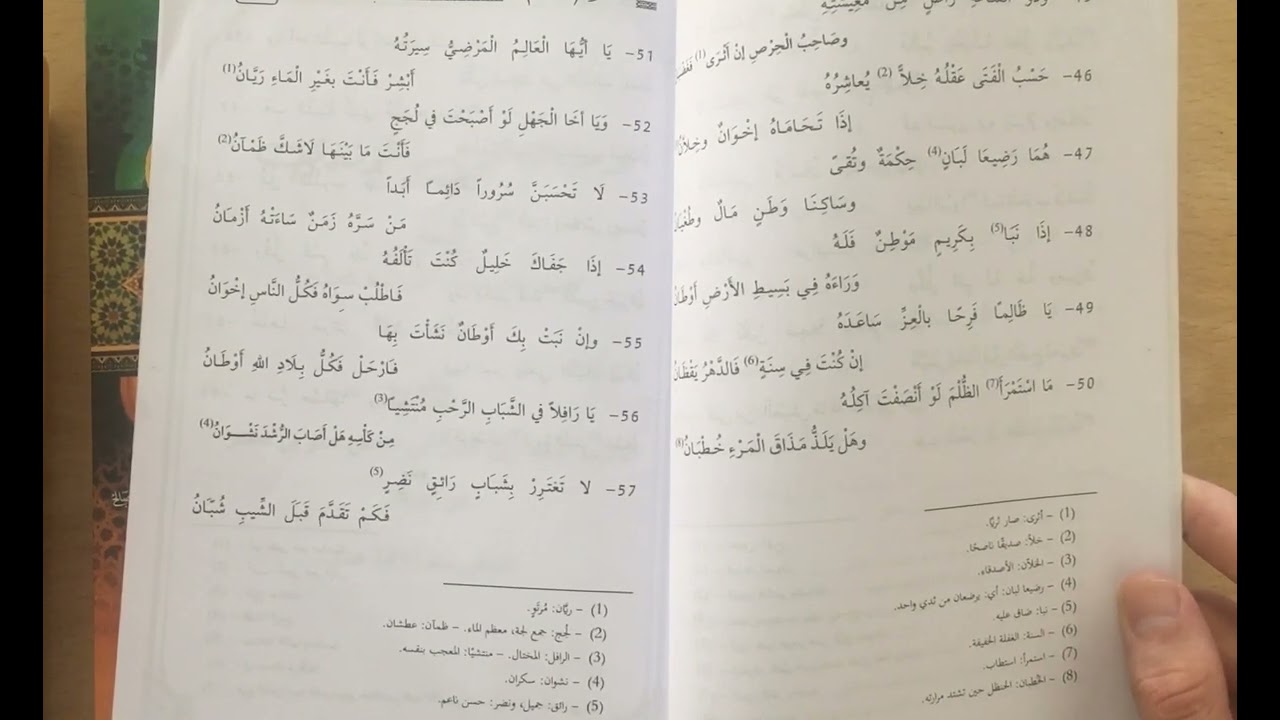 وصَاحِبُ الْحِرْصِ إنْ أَثْرَى (1)
46- حَسْبُ الْفَتَى عَقْلُهُ خِلاًّ (2) يُعاشِرُهُ
إذَا تَحَامَاهُ إخْوَانٌ وخِلاَّنُ
47- هُمَا رَضِيعَا لَبَانٍ (4) حِكْمَةٌ وتُقىً
وسَاكِنَا وَطَنٍ مَالٌ وطُغْيَانُ
48- إذَا نَبَا (5) بِكَرِيمٍ مَوْطِنٌ فَلَهُ
وَرَاءَهُ فِي بَسِيطِ الأَرْضِ أَوْطَانُ
49- يَا ظَالِمًا فَرِحًا بالْعِزِّ سَاعَدَهُ
إنْ كُنْتَ فِي سِنَةٍ (6) فَالدَّهْرُ يَقْظَانُ
50- مَا اسْتَمْرَأَ (7) الظُّلْمَ لَوْ أَنْصَفْتَ آكِلُهُ
وهَلْ يَلَذُّ مَذَاقَ الْمَرْءِ خُطْبَانُ (8)
(1) - أثرى: صار ثريًّا.
(2) - خلاًّ: صديقًا ناصحًا.
(3) - الخلاَّن: الأصدقاء.
(4) - رضيعا لبان: أي: يرضعان من ثدي واحد.
(5) - نبا: ضاق عليه.
(6) - السنة: الغفلة الخفيفة.
(7) - استمرأ: استطاب.
(8) - الخطبان: الحنظل حين تشتد مرارته.
51- يَا أَيُّهَا الْعَالِمُ الْمَرْضِيُّ سِيرَتُهُ
أَبْشِرْ فَأَنْتَ بغَيْرِ الْمَاءِ رَيَّانُ (1)
52- وَيَا أخَا الْجَهْلِ لَوْ أَصْبَحْتَ فِي لُجَجٍ
فَأَنْتَ مَا بَيْنَهَا لَاشَكَّ ظَمْآنُ (2)
53- لَا تَحْسَبَنَّ سُرُوراً دَائِمـًا أَبَداً
مَنْ سَرَّهُ زَمَنٌ سَاءَتْهُ أَزْمَانُ
54- إذَا جَفَاكَ خَلِيلٌ كُنْتَ تَأْلَفُهُ
فَاطْلُبْ سِوَاهُ فَكُلُّ النَّاسِ إخْوَانُ
55- وإنْ نَبَتْ بِكَ أَوْطَانٌ نَشَأْتَ بِهَا
فَارْحَلْ فَكُلُّ بِلَادِ اللهِ أَوْطَانُ
56- يَا رَافِلاً في الشَّبَابِ الرَّحْبِ مُنْتَشِيًا (3)
مِنْ كَأْسِهِ هَلْ أَصَابَ الرُّشْدَ نَشْوَانُ (4)
57- لا تَغْتَرِرْ بِشَبَابٍ رَائِقٍ نَضِرٍ (5)
فَكَمْ تَقَدَّمَ قَبْلَ الشِّيبِ شُبَّانُ
(1) - ريَّان: مُرْتَوٍ.
(2) - لُجج: جمع لجة، معظم الماء. - ظمآن: عطشان.
(3) - الرافل: المختال. - منتشيًا: المعجب بنفسه.
(4) - نشوان: سكران.
(5) - رائق: جميل، ونضر: حسن ناعم.